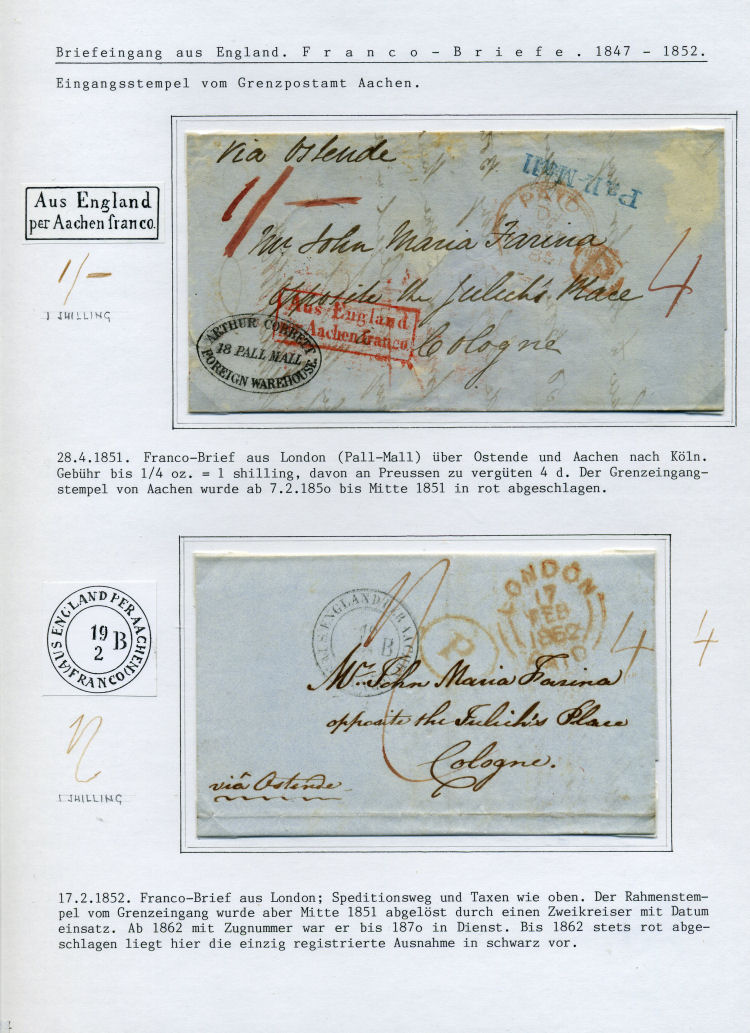 Briefeingang aus England. Franco-Briefe. 1847 - 1852.
Eingangsstempel vom Grenzpostamt Aachen.
Aus England
per Aachen franco.
1/-
1 SHILLING
via Ostende
Pall-Mall
PAID
1/-
Mr John Maria Farina
opposite the Julich's Place
Cologne
4
Aus England
Aachen franco
ARTHUR CORBETT
18 PALL MALL
FOREIGN WAREHOUSE.
28.4.1851. Franco-Brief aus London (Pall-Mall) über Ostende und Aachen nach Köln.
Gebühr bis 1/4 oz. = 1 shilling, davon an Preussen zu vergüten 4 d. Der Grenzeingang-
stempel von Aachen wurde ab 7.2.185o bis Mitte 1851 in rot abgeschlagen.
AUS ENGLAND PER AACHEN
19
2
B
FRANCO
1 SHILLING
AUS ENGLAND PER AACHEN
19
B
P
LONDON
17
FEB
1852
PAID
4
4
Mr. John Maria Farina
opposite the Julich's Place
Cologne.
viâ Ostende
17.2.1852. Franco-Brief aus London; Speditionsweg und Taxen wie oben. Der Rahmenstem-
pel vom Grenzeingang wurde aber Mitte 1851 abgelöst durch einen Zweikreiser mit Datum
einsatz. Ab 1862 mit Zugnummer war er bis 187o in Dienst. Bis 1862 stets rot abge-
schlagen liegt hier die einzig registrierte Ausnahme in schwarz vor.